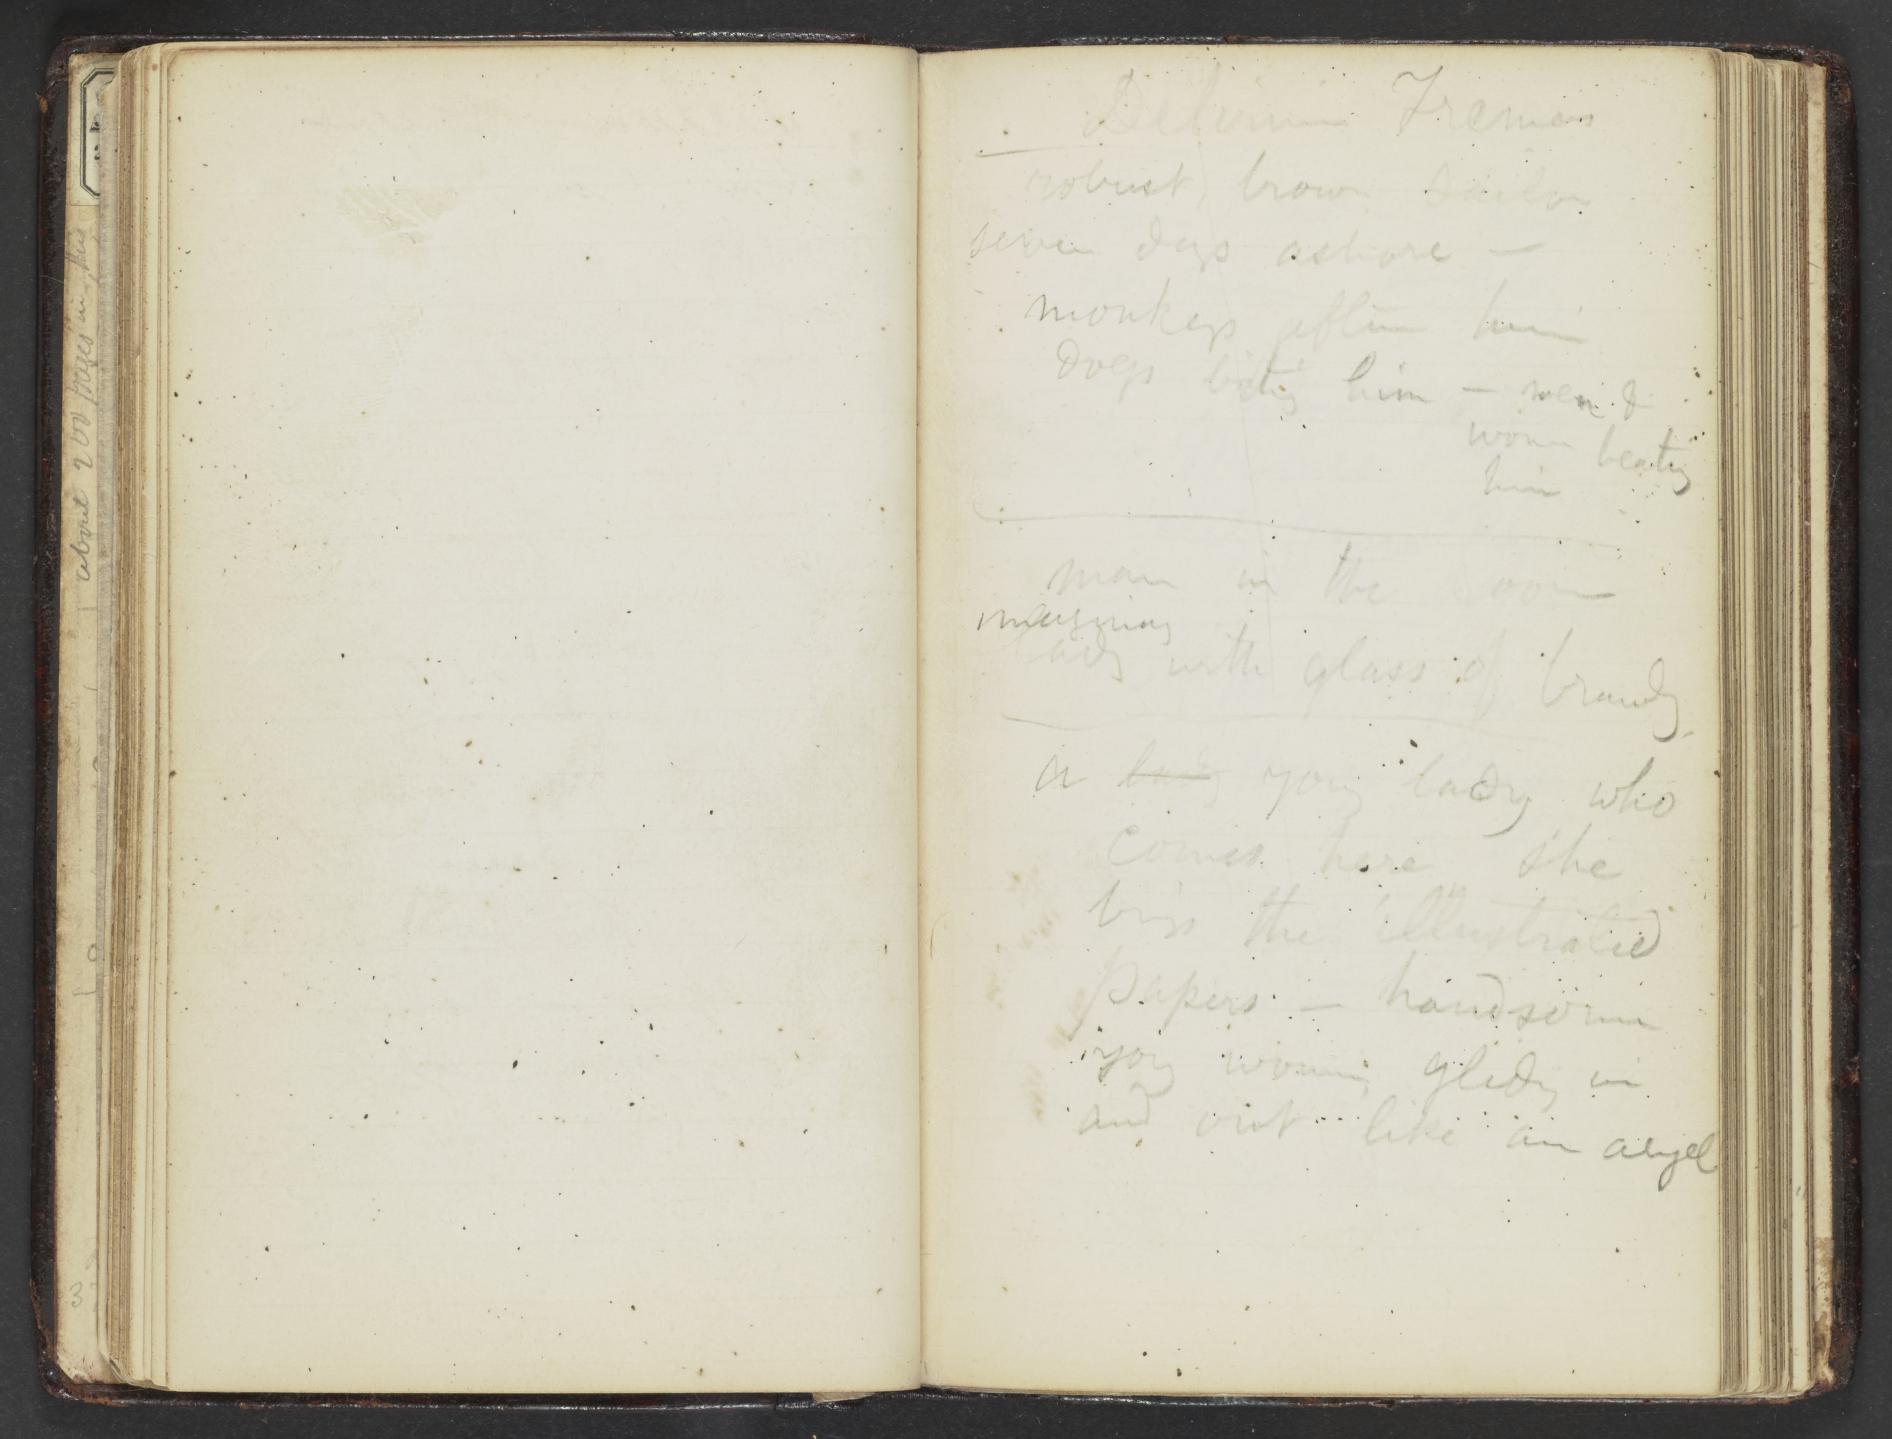 about 200 pages in this
3
Delirium Tremens
robust, brown sailor
seven days ashore —
monkeys after him
Dogs biting him — men &
women beating
him
man in the room
imaginary
lady with glass of brandy
a lady young lady who
comes here she
brings the illustrated
papers — handsome
young woman, gliding in
and out like an angel